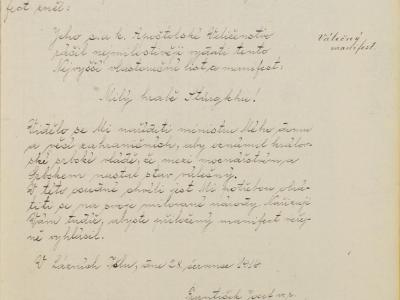 fest zněl:
Jeho c.a k. Apoštolské Veličenstvo
ráčil nejmilostivěji vydati tento
Nejvyšší vlastnoruční list a manifest:
Válečný
manifest.
"Milý hrabě Stürgkhu!
Vidělo se Mi naříditi ministru Mého domu
a věcí zahraničních, aby oznámil králov-
ské srbské vládě, že mezi mocnářstvím a
Srbskem nastal stav válečný.
V této osudné chvíli jest Mi potřebou obrá-
titi se na svoje milované národy. Nařizuji
Vám tudíž, abyste přiložený manifest veřej-
ně vyhlásil.
V Lázních Išlu, dne 28. července 1914
František Josef v.r.